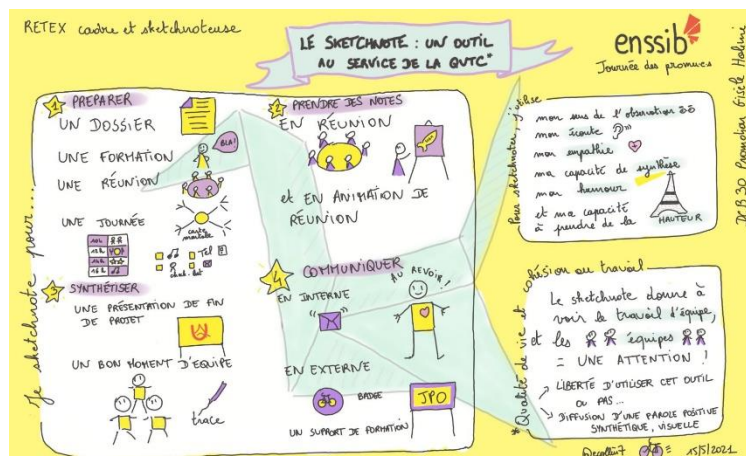 RETEX cadre et sketchnoteuse
LE SKETCHNOTE : UN OUTIL
AU SERVICE DE LA QVTC*
enssib
Journée des promues
DCB 30 Promotion Gisèle Halimi
Je sketchnote pour...
1 PREPARER
UN DOSSIER
UNE FORMATION
BLA!
UNE RÉUNION
UNE JOURNÉE
carte
mentale
Tel
chat-bot
2 PRENDRE DES NOTES
EN RÉUNION
et EN ANIMATION DE
RÉUNION
3 SYNTHÉTISER
UNE PRÉSENTATION DE FIN
DE PROJET
UN BON MOMENT D'EQUIPE
trace
4 COMMUNIQUER
EN INTERNE
AU REVOIR!
EN EXTERNE
BADGE
JPO
UN SUPPORT DE FORMATION
Pour sketchnoter, j'utilise
mon sens de l'observation
mon écoute
mon empathie
ma capacité de synthèse
mon humour
et ma capacité
à prendre de la
HAUTEUR
*Qualité de vie et cohésion au travail
Le sketchnote donne à
voir le travail d'équipe,
et les équipes
= UNE ATTENTION !
LIBERTÉ D'UTILISER CET OUTIL
OU PAS...
DIFFUSION D'UNE PAROLE POSITIVE
SYNTHÉTIQUE, VISUELLE
15/5/2021